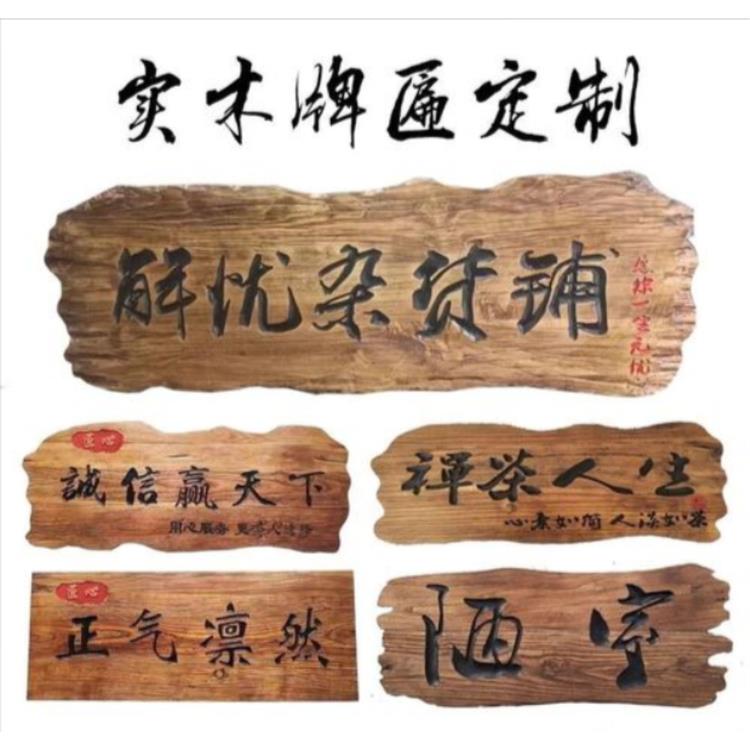 实木牌匾定制
解忧杂货铺
您妳一生无忧
匠心
誠信赢天下
用心服务
禪茶人生
心素如简人淡如茶
匠心
正气凛然
陋室